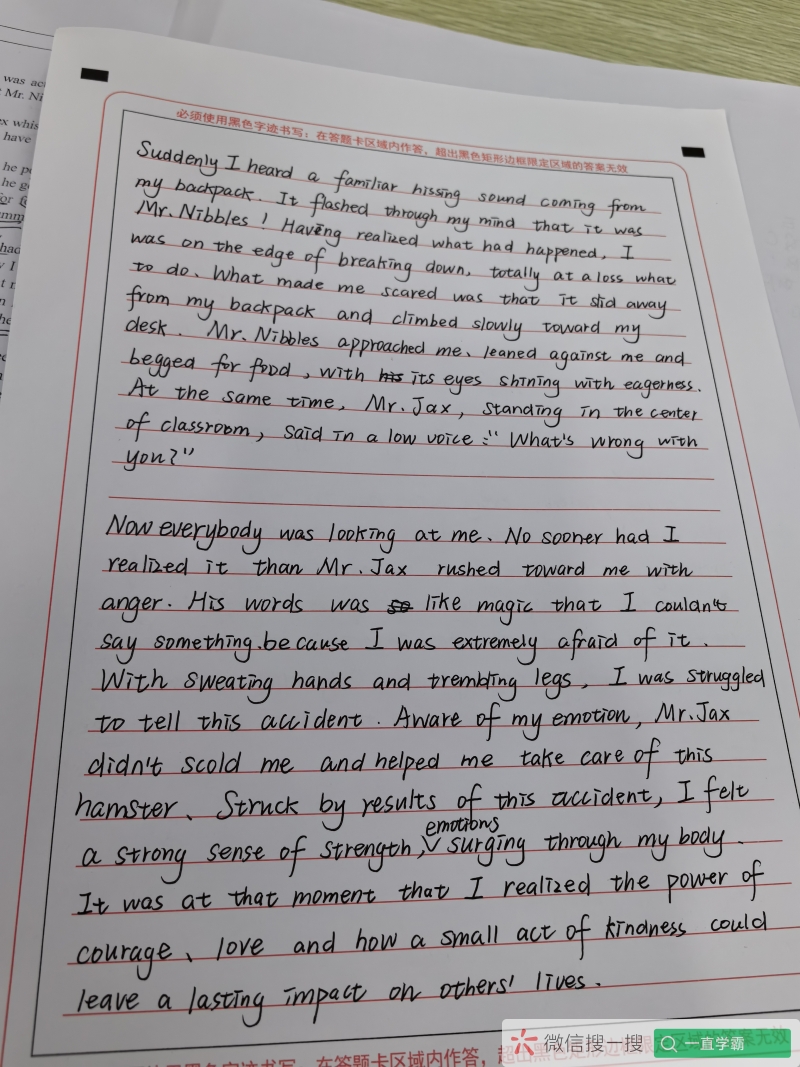 必须使用黑色字迹书写：在答题卡区域内作答，超出黑色矩形边框限定区域的答案无效
Suddenly I heard a familiar hissing sound coming from
my backpack. It flashed through my mind that it was
Mr. Nibbles! Having realized what had happened, I
was on the edge of breaking down, totally at a loss what
to do. What made me scared was that it slid away
from my backpack and climbed slowly toward my
desk. Mr. Nibbles approached me, leaned against me and
begged for food, with its eyes shining with eagerness.
At the same time, Mr. Jax, standing in the center
of classroom, said in a low voice :" What's wrong with
you?"
Now everybody was looking at me. No sooner had I
realized it than Mr. Jax rushed toward me with
anger. His words was like magic that I couldn't
say something. because I was extremely afraid of it.
With sweating hands and trembling legs, I was struggled
to tell this accident. Aware of my emotion, Mr. Jax
didn't scold me and helped me take care of this
hamster. Struck by results of this accident, I felt
a strong sense of strength, emotions surging through my body.
It was at that moment that I realized the power of
courage、love and how a small act of kindness could
leave a lasting impact on others' lives.
微信搜一搜
一直学霸
was
Mr.
have
he
he
had